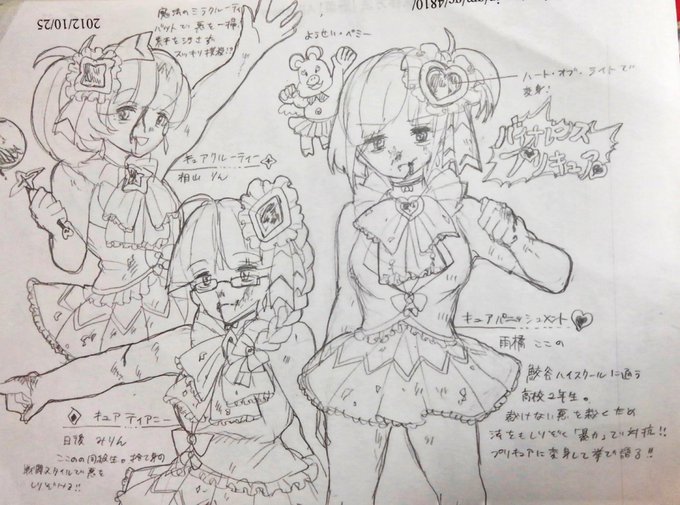 2012/10/25
魔法のミラクルーティ
バットで悪を一掃
素手を汚さず
スッキリ撲殺!!
ようせい・ペミー
ハート・オブ・ライトで
変身!
バイオレンス
プリキュア。
キュアクルーティー
相山 りん
キュアパニッシュメント
雨橋 ここの
鮫谷ハイスクールに通う
高校2年生。
裁けない悪を裁くため
法をもしりぞく「暴力」で対抗!!
プリキュアに変身して拳で語る!!
キュア ティアニー
日後 みりん
ここのの同級生。捨て身の
戦闘スタイルで悪を
しりぞける!!